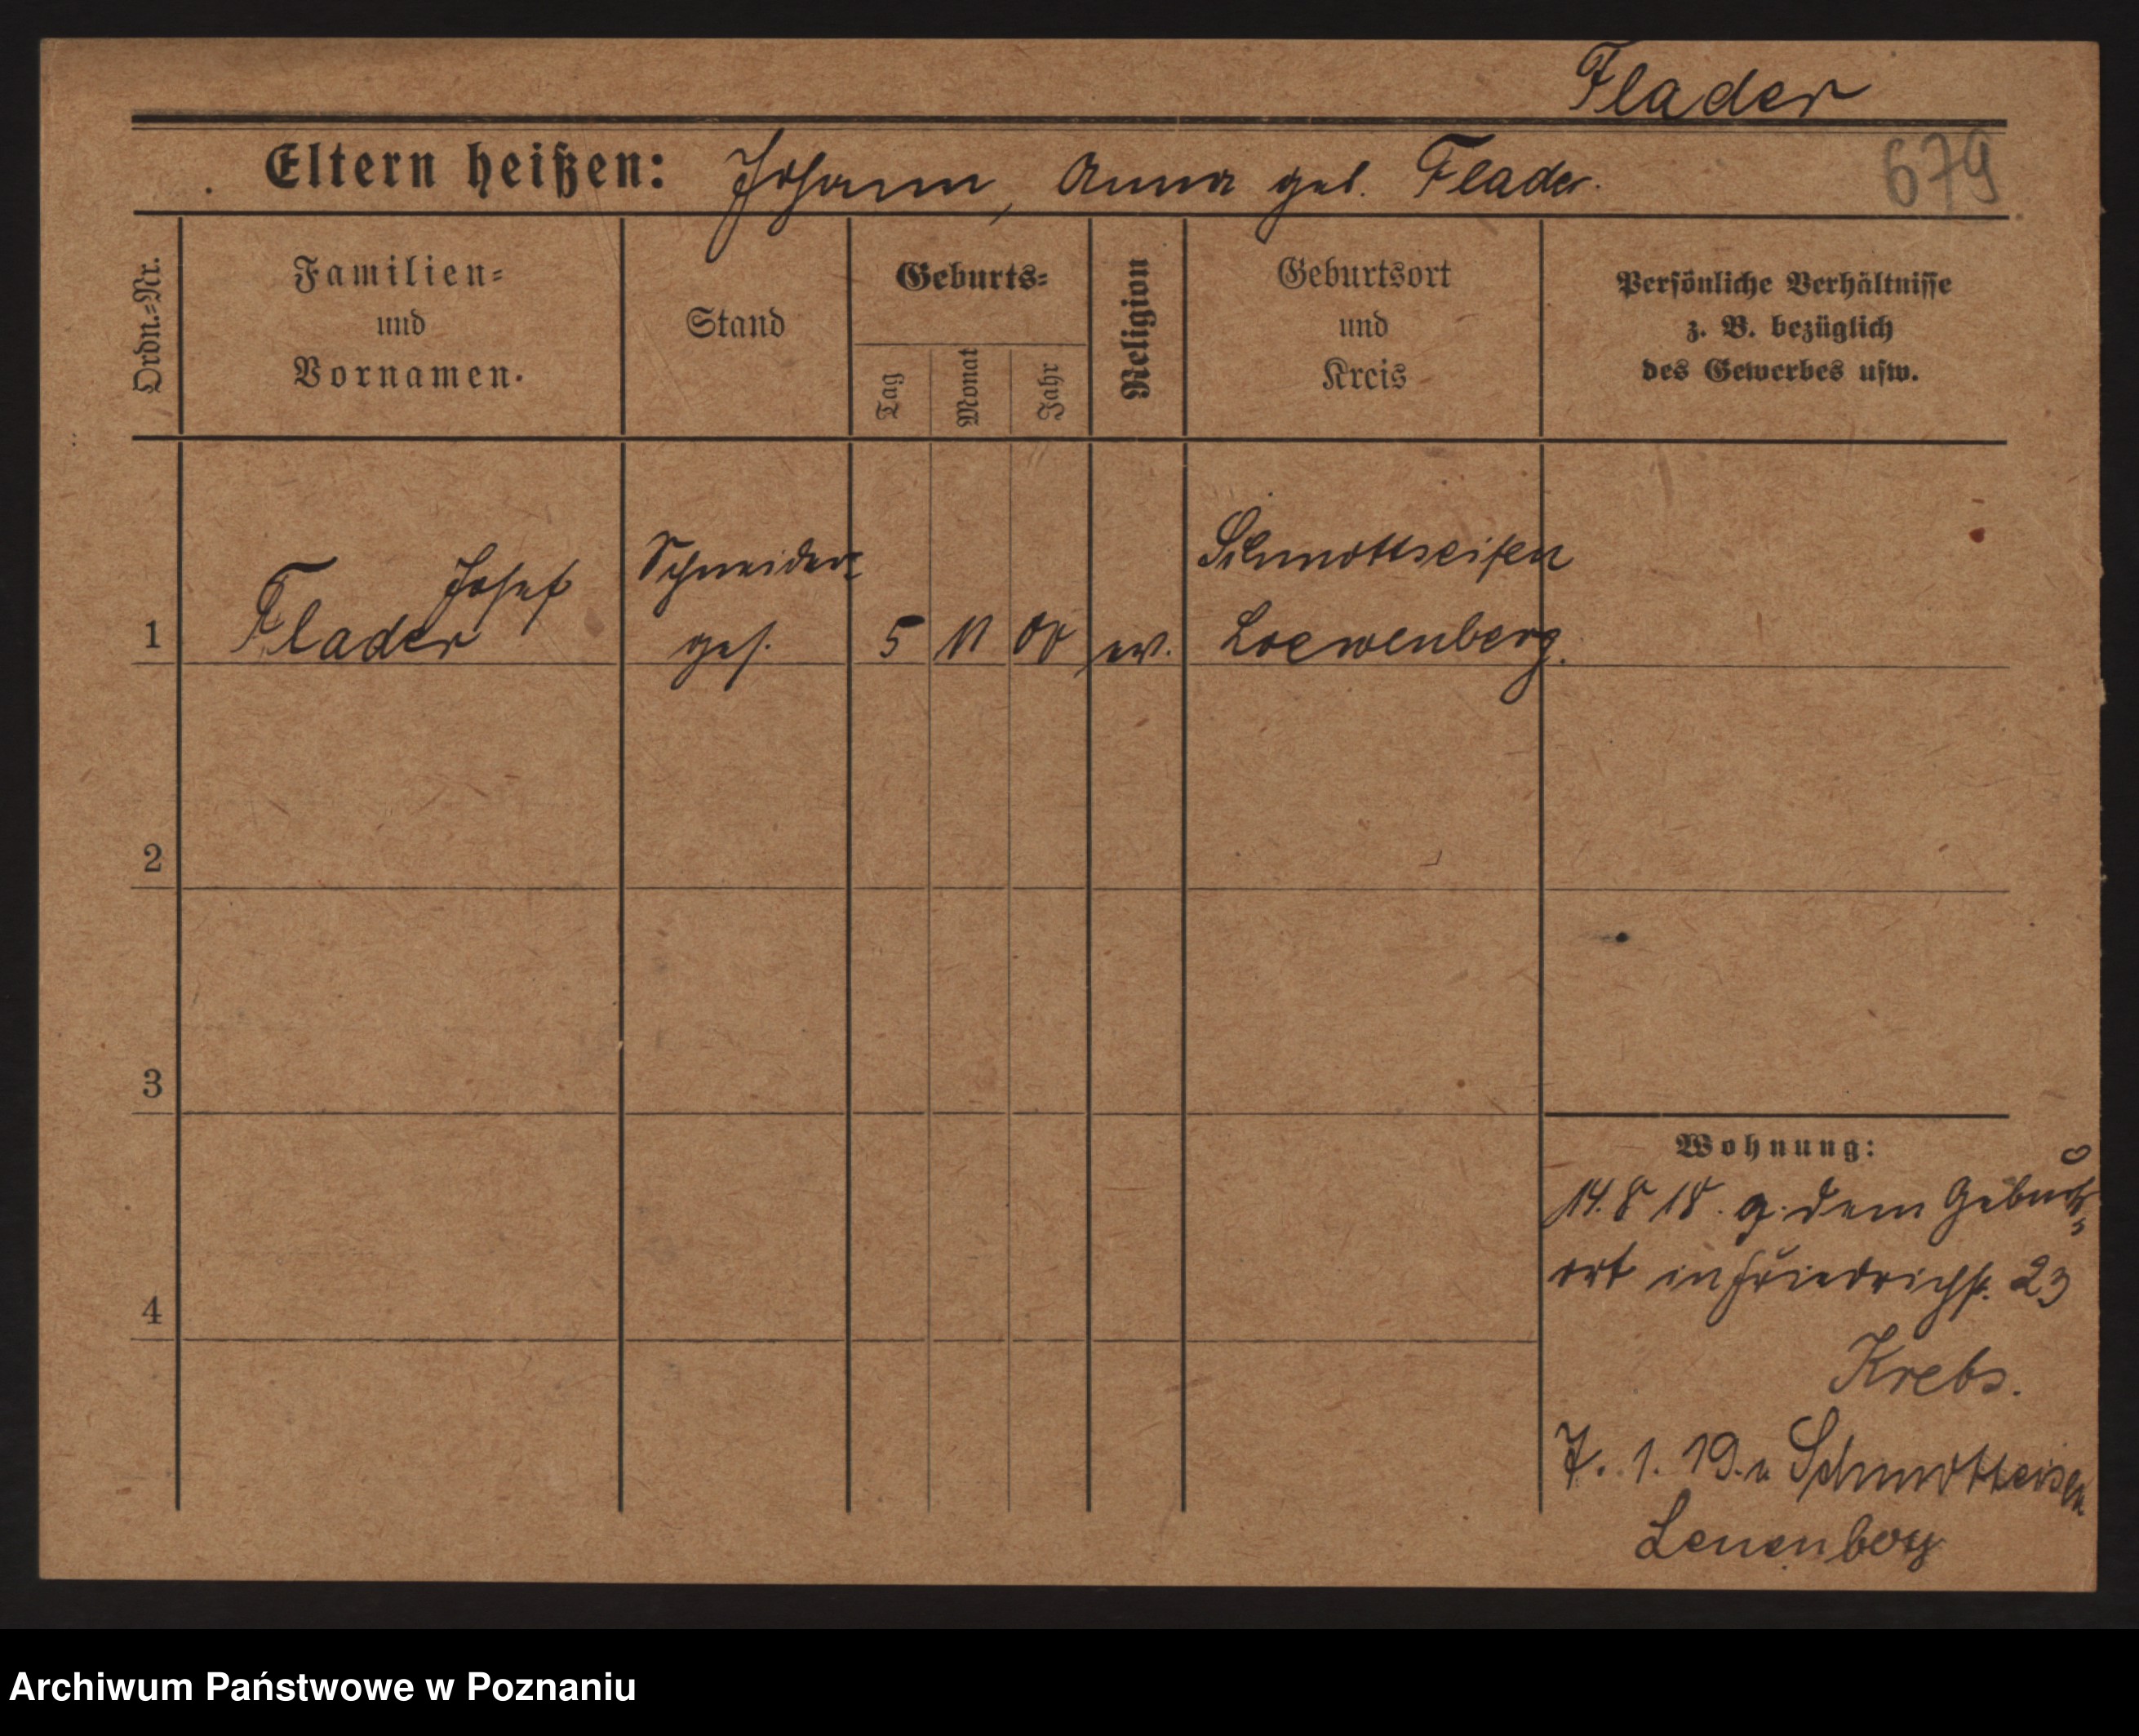 Flader
Eltern heißen: Johann, Anna geb. Flader.
679
Ordn.-Nr.
Familien-
und
Vornamen.
Stand
Geburts-
Tag
Monat
Jahr
Religion
Geburtsort
und
Kreis
Persönliche Verhältnisse
z. B. bezüglich
des Gewerbes usw.
1
Flader Josef
Schneider-
ges.
5
11
00
ev.
Schmottseifen
Loewenberg.
2
3
4
Wohnung:
14. 8 18. a. dem Geburts-
ort in Friedrichst. 23
Krebs.
7. 1. 19. n Schmottseifen
Lenenberg
Archiwum Państwowe w Poznaniu